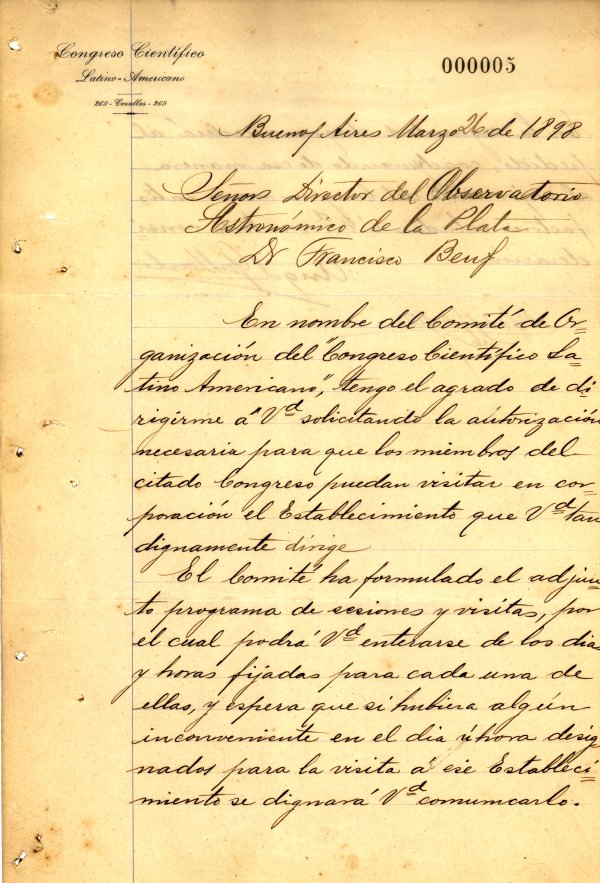 Congreso Científico
Latino-Americano
269 - Cevallos - 269
000005
Buenos Aires Marzo 26 de 1898
Señor Director del Observatorio
Astronómico de la Plata
Dr Francisco Beuf
En nombre del Comité de Or=
ganización del "Congreso Científico La=
tino Americano", tengo el agrado de di=
rigirme á Vd solicitando la autorización
necesaria para que los miembros del
citado Congreso puedan visitar en cor=
poración el Establecimiento que Vd tan
dignamente dirige
El Comité ha formulado el adjun=
to programa de sesiones y visitas, por
el cual podrá Vd enterarse de los dias
y horas fijadas para cada una de
ellas, y espera que si hubiera algún
inconveniente en el dia ú hora desig
nados para la visita á ese Estableci=
miento se dignará Vd comunicarlo.